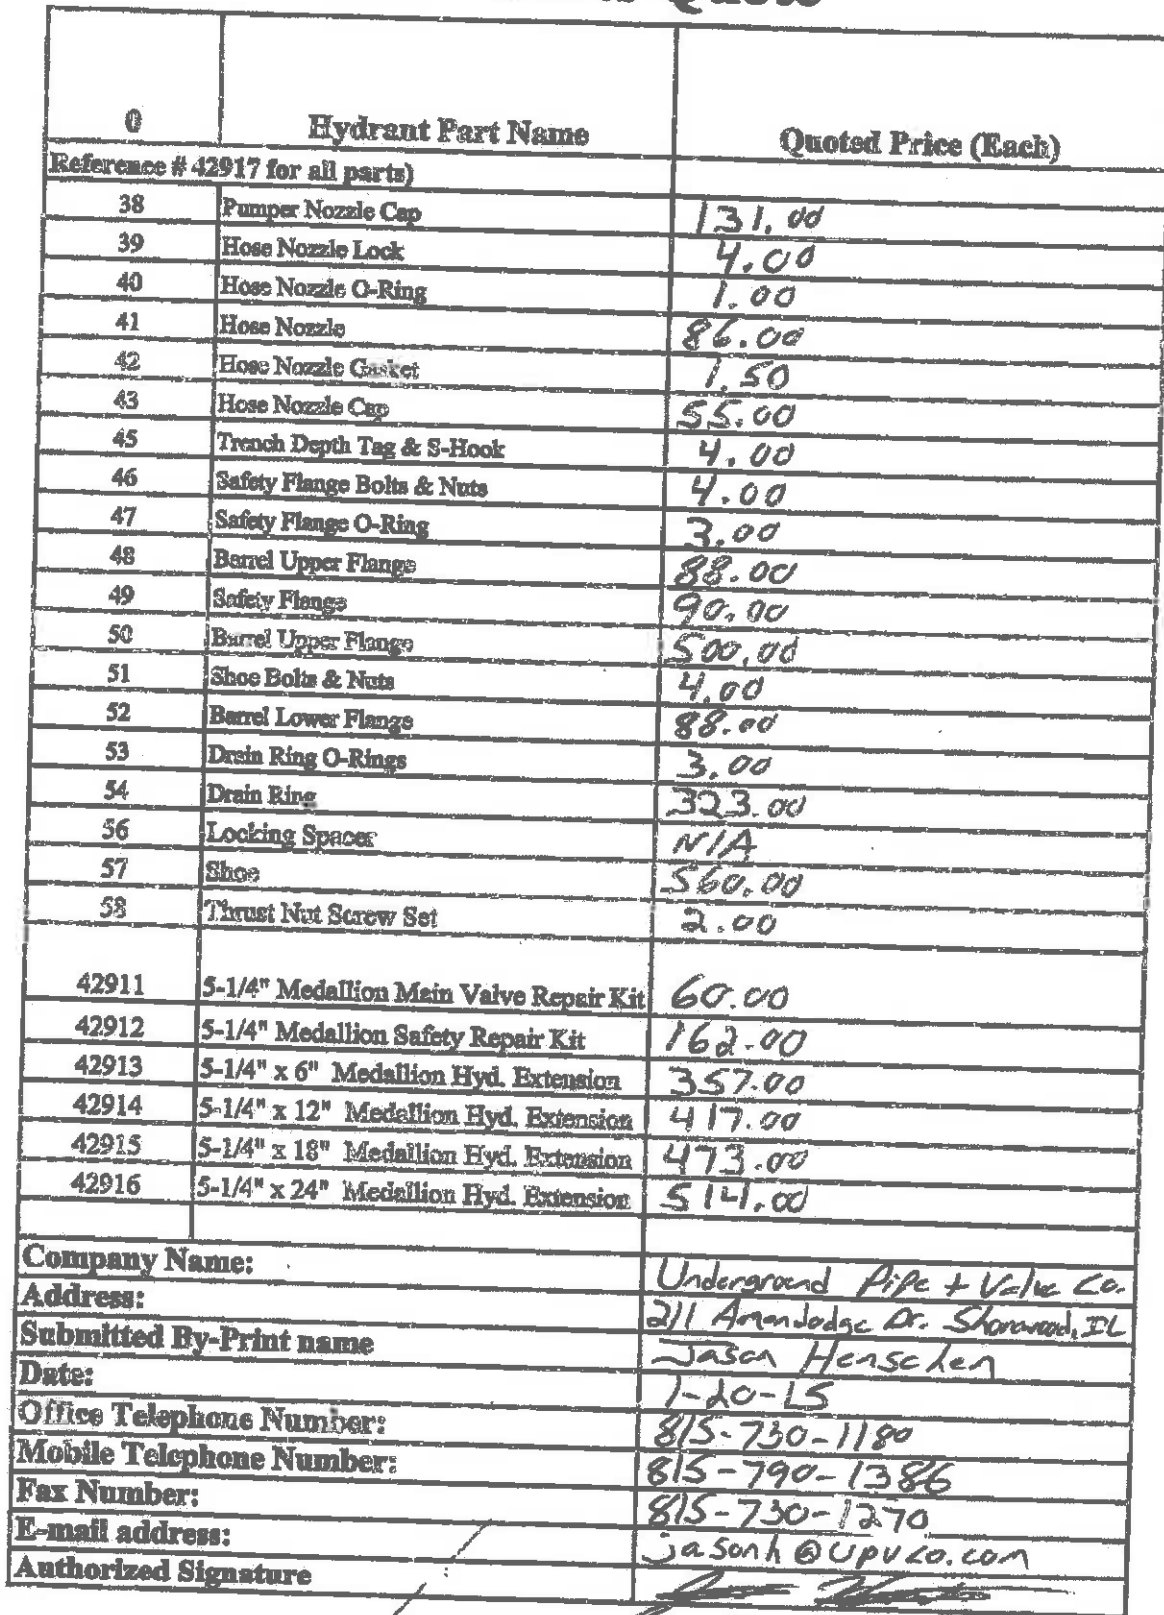 Quote
0 Hydrant Part Name Quoted Price (Each)
Reference # 42917 for all parts)
38 Pumper Nozzle Cap 131.00
39 Hose Nozzle Lock 4.00
40 Hose Nozzle O-Ring 1.00
41 Hose Nozzle 86.00
42 Hose Nozzle Gasket 1.50
43 Hose Nozzle Cap 55.00
45 Trench Depth Tag & S-Hook 4.00
46 Safety Flange Bolts & Nuts 4.00
47 Safety Flange O-Ring 3.00
48 Barrel Upper Flange 88.00
49 Safety Flange 90.00
50 Barrel Upper Flange 500.00
51 Shoe Bolts & Nuts 4.00
52 Barrel Lower Flange 88.00
53 Drain Ring O-Rings 3.00
54 Drain Ring 323.00
56 Locking Spacer N/A
57 Shoe 560.00
58 Thrust Nut Screw Set 2.00
42911 5-1/4" Medallion Main Valve Repair Kit 60.00
42912 5-1/4" Medallion Safety Repair Kit 162.00
42913 5-1/4" x 6" Medallion Hyd. Extension 357.00
42914 5-1/4" x 12" Medallion Hyd. Extension 417.00
42915 5-1/4" x 18" Medallion Hyd. Extension 473.00
42916 5-1/4" x 24" Medallion Hyd. Extension 514.00
Company Name: Underground Pipe + Valve Co.
Address: 211 Amendodge Dr. Shorewood, IL
Submitted By-Print name Jason Henschen
Date: 1-20-15
Office Telephone Number: 815-730-1180
Mobile Telephone Number: 815-790-1386
Fax Number: 815-730-1270
E-mail address: jasonh@upvco.com
Authorized Signature